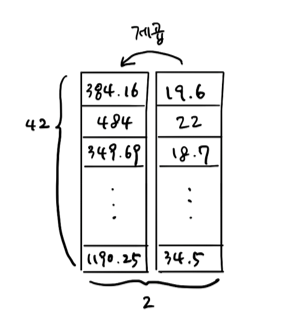 제곱
384.16 19.6
484 22
42
349.69 18.7
1190.25 34.5
2